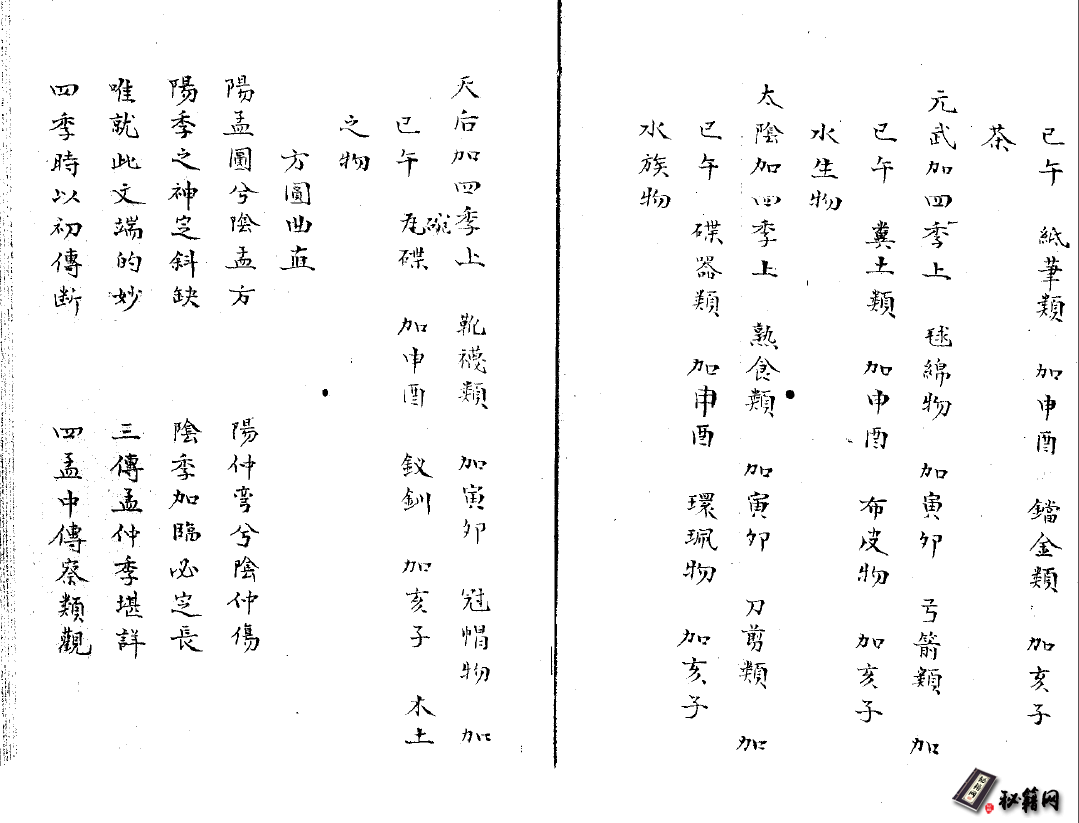 巳午　紙筆類　加申酉　鐺金類　加亥子
茶
元武加四季上　毬綿物　加寅卯　弓箭類　加
巳午　糞土類　加申酉　布皮物　加亥子
水生物
太陰加四季上　熟食類　加寅卯　刀剪類　加
巳午　碟器類　加申酉　環珮物　加亥子
水族物
天后加四季上　靴襪類　加寅卯　冠帽物　加
巳午　碗瓦碟　加申酉　釵釧　加亥子　木土
之物
方圓曲直
陽孟圓兮陰孟方　陽仲彎兮陰仲傷
陽季之神定斜缺　陰季加臨必定長
唯就此文端的妙　三傳孟仲季堪詳
四季時以初傳斷　四孟中傳察類觀
秘籍网